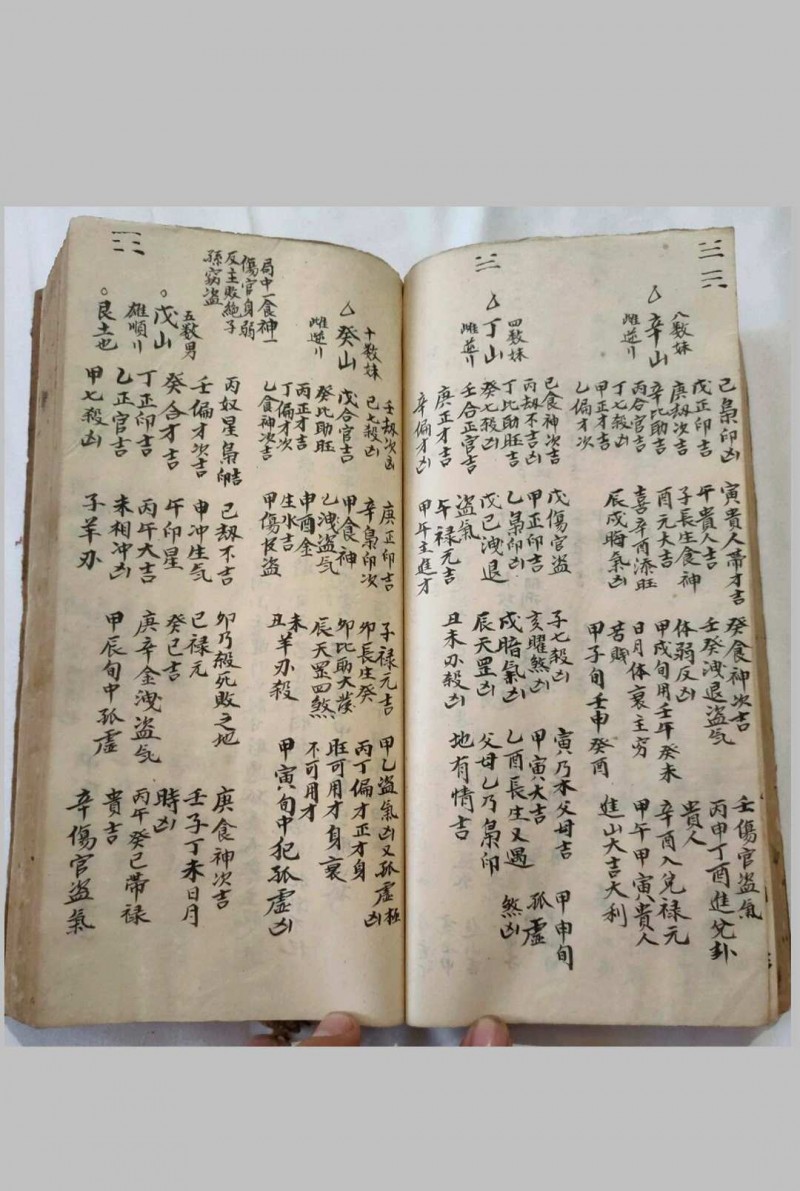 八数妹
辛山
雌逆行
己梟印凶
戊正印吉
庚劫次吉
辛比助吉
丙合官吉
丁七殺凶
甲正才吉
乙偏才次
寅貴人帶才吉
午貴人吉
子長生食神
酉元大吉
喜辛酉添旺
辰戌晦氣凶
癸食神次吉
壬癸洩退盜气
体弱反凶
甲戌旬用壬午癸未
日月体衰主穷
苦賤
甲子旬壬申癸酉
壬傷官盜氣
丙申丁酉進兌卦
貴人
辛酉入兌禄元
甲午甲寅貴人
進山大吉大利
四数妹
丁山
雌逆行
己食神次吉
丙劫不吉凶
丁比助旺吉
癸七殺凶
壬合正官吉
庚正才吉
辛偏才凶
戊傷官盜
甲正印吉
乙梟印凶
戊己洩退
盜气
午禄元吉
甲午主進才
子七殺凶
亥曜煞凶
戌暗氣凶
辰天罡凶
丑未刃殺凶
寅乃本父母吉
甲寅大吉
乙酉長生又遇
父母乙乃梟印
地有情吉
甲申旬
孤虛
煞凶
十数妹
癸山
雌逆行
壬劫次凶
己七殺凶
戊合官吉
癸比助旺
丙正才吉
丁偏才次
乙食神次吉
庚正印吉
辛梟印次
甲食神
乙洩盜气
申酉金
生水吉
甲傷官盜
子禄元吉
卯長生癸
卯比助大發
辰天罡四煞
未
丑羊刃殺
甲乙盜氣凶又孤虛極凶
丙丁偏才正才身
旺可用才身衰
不可用才
甲寅旬中犯孤虛凶
局中一食神一
傷官身弱
反主敗絶子
孫窮盜
五数男
戊山
雄順行
艮土也
丙奴星梟印吉
壬偏才次吉
癸合才吉
丁正印吉
乙正官吉
甲七殺凶
己劫不吉
申冲生气
午印星
丙午大吉
未相冲凶
子羊刃
卯乃殺死敗之地
巳禄元
癸巳吉
庚辛金洩盜气
甲辰旬中孤虛
庚食神次吉
壬子丁未日月
時凶
丙午癸巳帶禄
貴吉
辛傷官盜氣